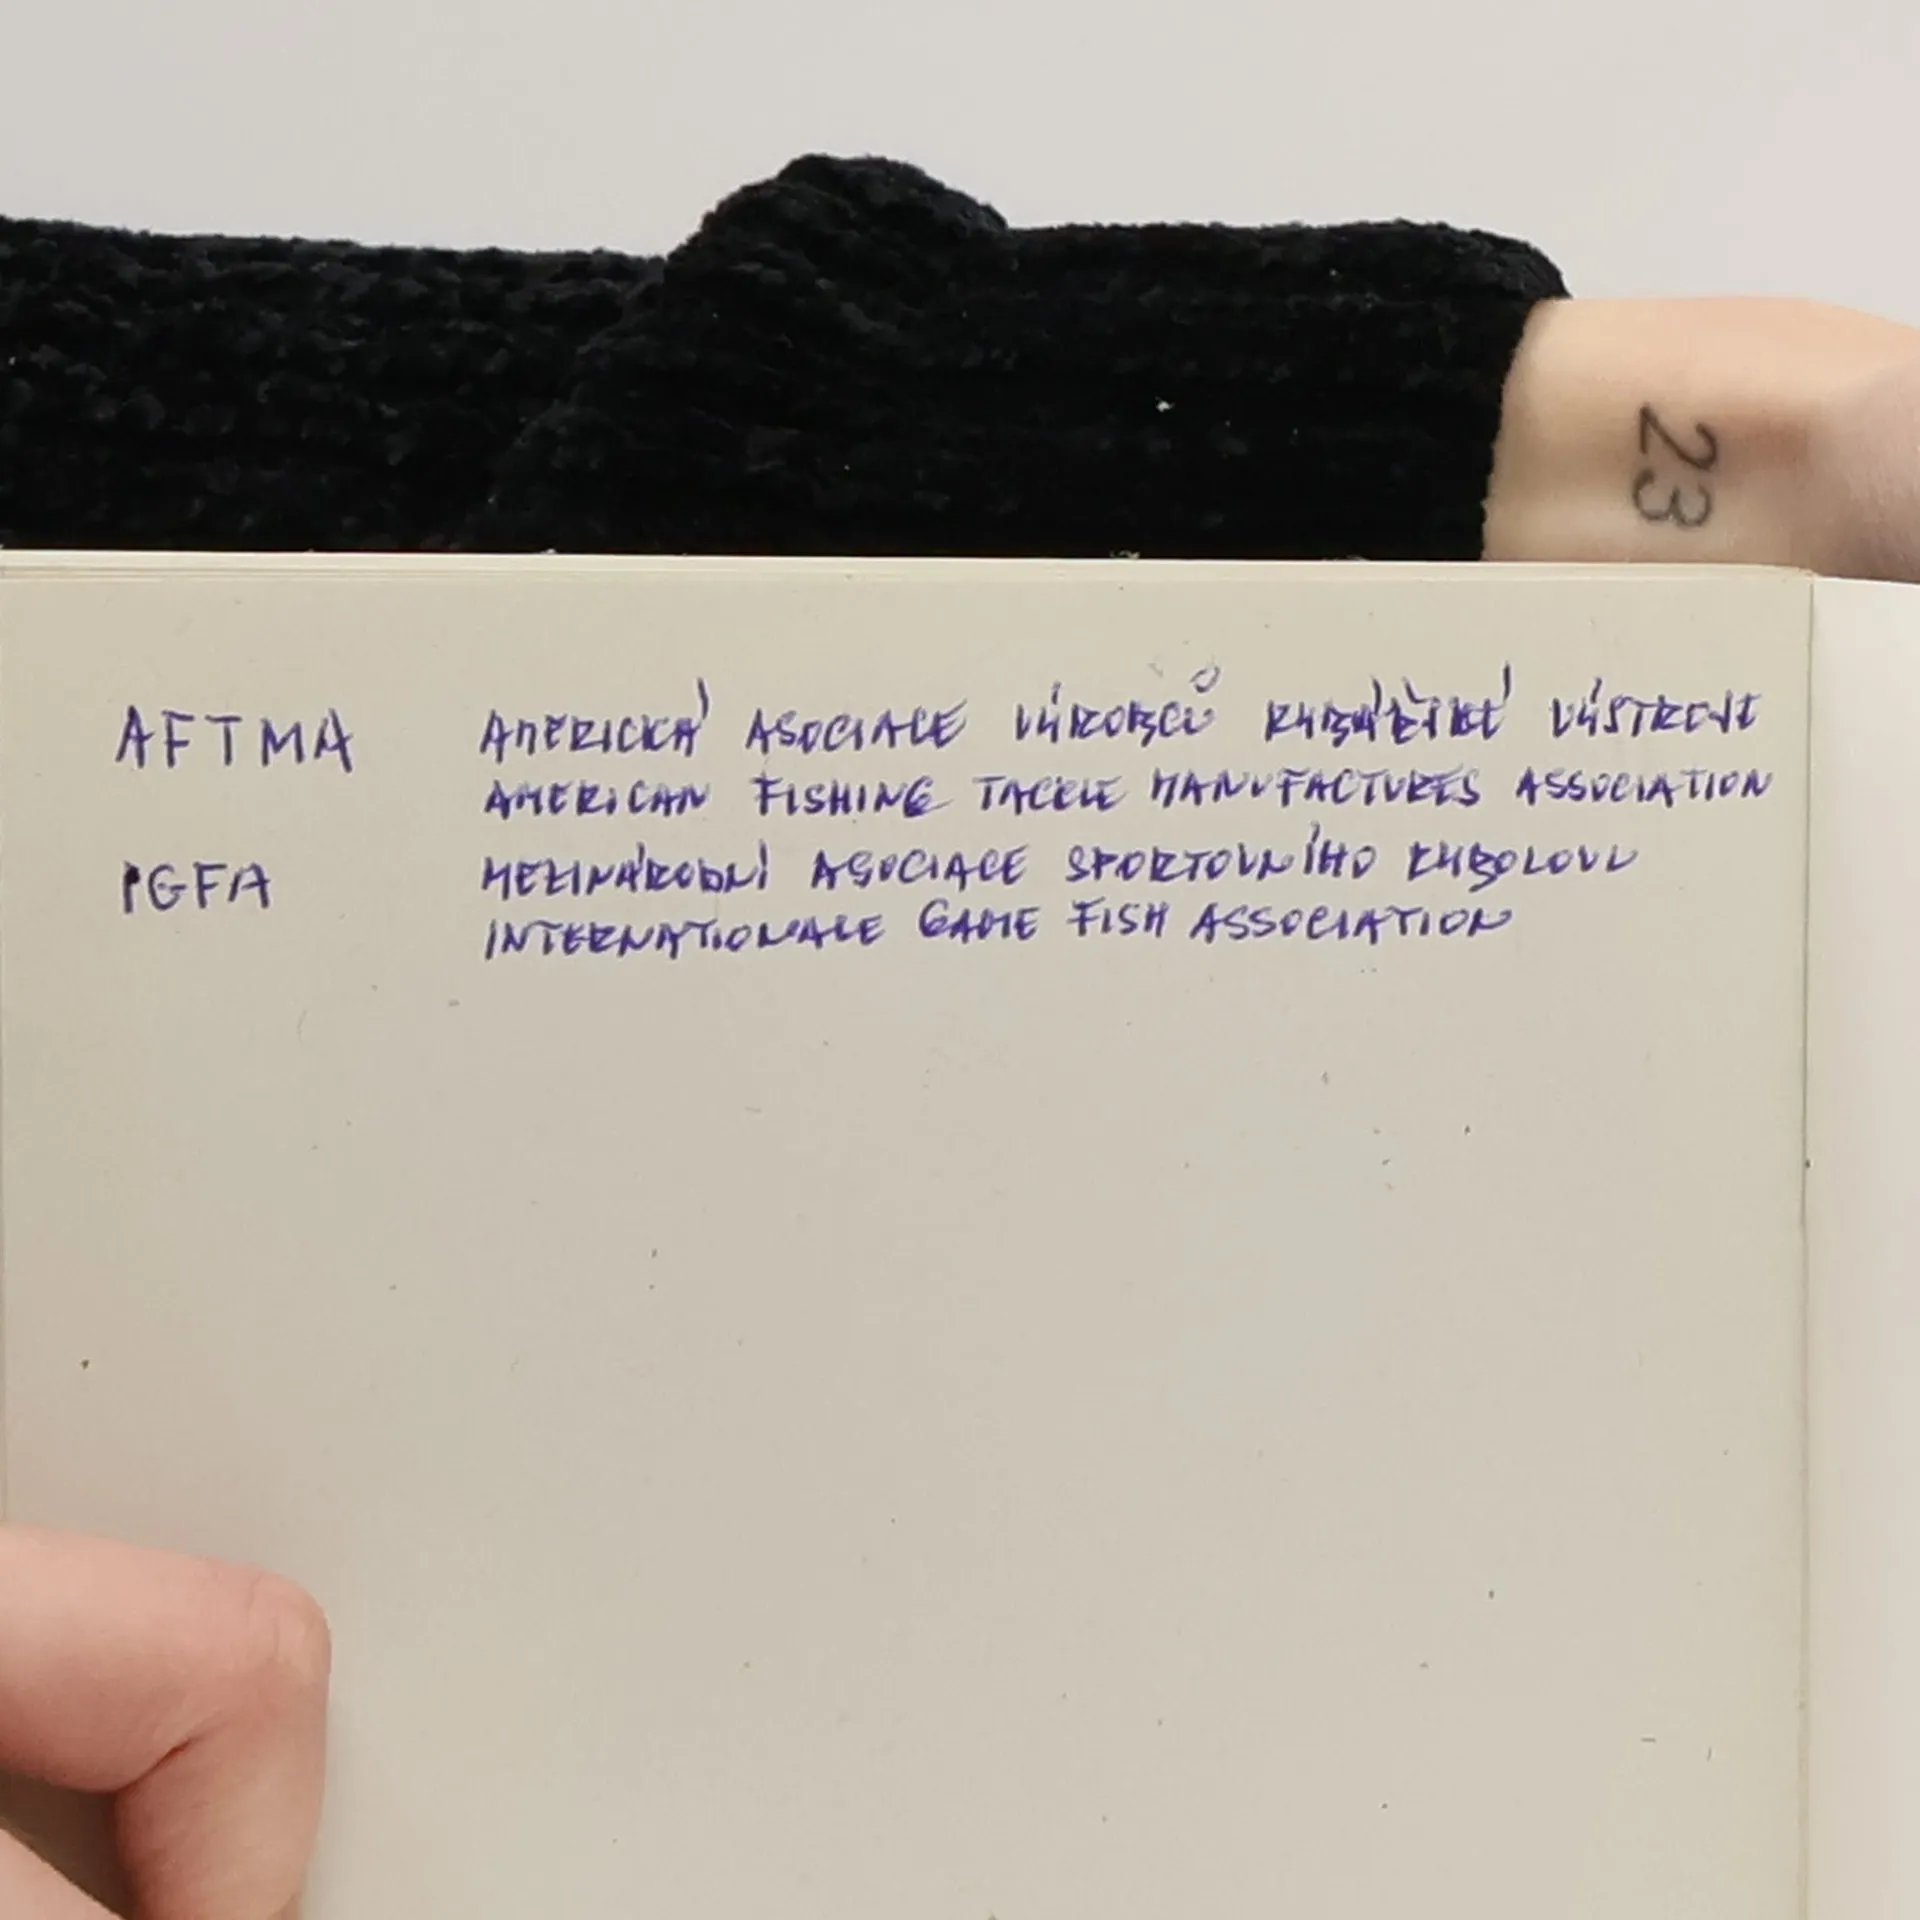 23
AFTMA AMERICKÁ ASOCIACE VÝROBCŮ RYBÁŘSKÉ VÝSTROJE
AMERICAN FISHING TACKLE MANUFACTURES ASSOCIATION
IGFA MEZINÁRODNÍ ASOCIACE SPORTOVNÍHO RYBOLOVU
INTERNATIONALE GAME FISH ASSOCIATION